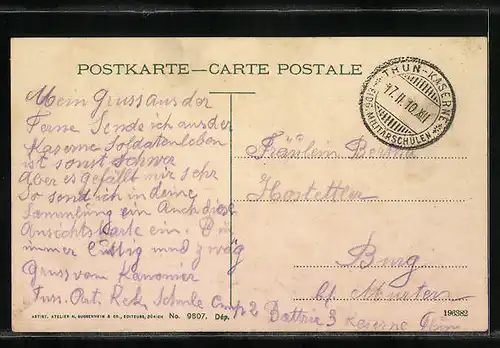 POSTKARTE—CARTE POSTALE
THUN-KASERNE
17.II.10.XII
EIDG. MILITÄRSCHULEN
Mein Gruss aus der
Ferne Sende ich aus der
Kaserne Soldatenleben
ist sonst schwer
Aber es gefällt mir sehr
So send ich in deine
Sammlung ein Auch diese
Ansichtskarte ein. Bin
immer lustig und
Gruss vom Kanonier
Rek. Schule Comp 2 Battrie 3 Kaserne Thun
Fräulein Bertha
Hostettler
Burg
b/ Murten
ARTIST. ATELIER H. GUGGENHEIM & CO., EDITEURS, ZÜRICH No. 9807. Dép.
196382